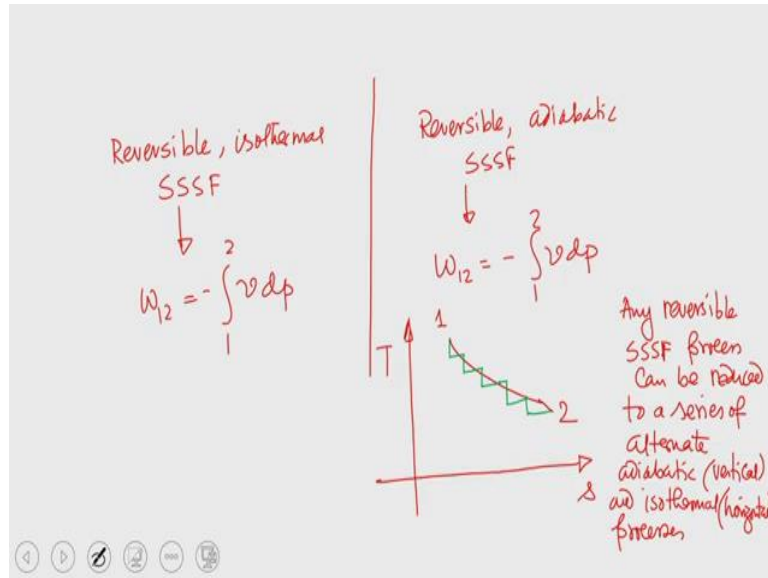 Reversible, isothermal
SSSF
2
W12 = - ∫ v dp
1
Reversible, adiabatic
SSSF
2
W12 = - ∫ v dp
1
1
T
2
s
Any reversible
SSSF process
can be reduced
to a series of
alternate
adiabatic (vertical)
and isothermal (horizontal
processes